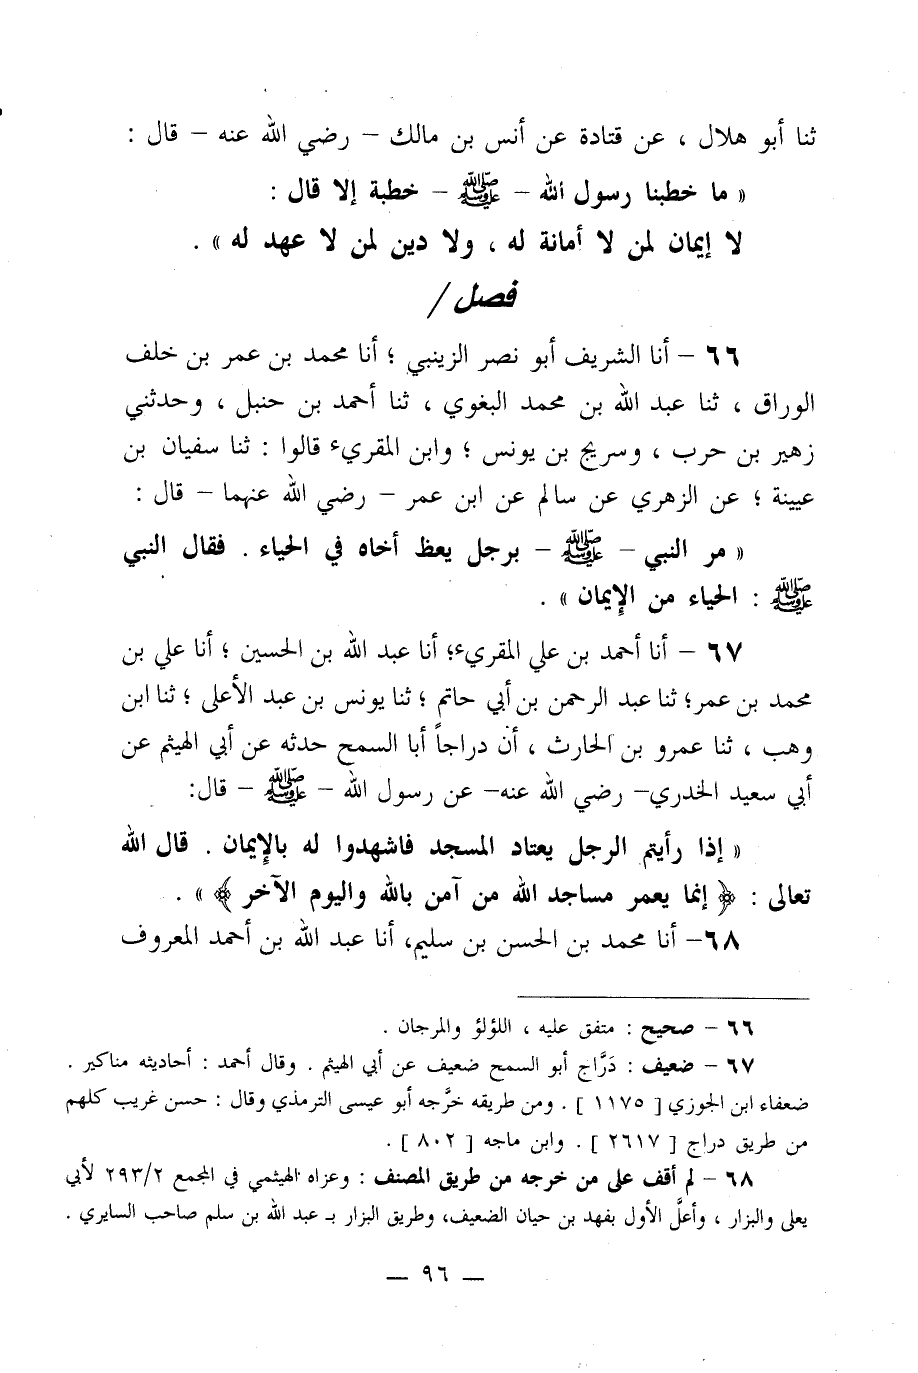 ثنا أبو هلال ، عن قتادة عن أنس بن مالك – رضي الله عنه – قال :
« ما خطبنا رسول الله – ﷺ – خطبة إلا قال :
لا إيمان لمن لا أمانة له ، ولا دين لمن لا عهد له » .
فصل /
٦٦ – أنا الشريف أبو نصر الزينبي ؛ أنا محمد بن عمر بن خلف
الوراق ، ثنا عبد الله بن محمد البغوي ، ثنا أحمد بن حنبل ، وحدثني
زهير بن حرب ، وسريج بن يونس ؛ وابن المقريء قالوا : ثنا سفيان بن
عيينة ؛ عن الزهري عن سالم عن ابن عمر – رضي الله عنهما – قال :
« مر النبي – ﷺ – برجل يعظ أخاه في الحياء . فقال النبي
ﷺ : الحياء من الإيمان » .
٦٧ – أنا أحمد بن علي المقريء؛ أنا عبد الله بن الحسين ؛ أنا علي بن
محمد بن عمر؛ ثنا عبد الرحمن بن أبي حاتم ؛ ثنا يونس بن عبد الأعلى ؛ ثنا ابن
وهب ، ثنا عمرو بن الحارث ، أن دراجاً أبا السمح حدثه عن أبي الهيثم عن
أبي سعيد الخدري– رضي الله عنه– عن رسول الله – ﷺ – قال:
« إذا رأيتم الرجل يعتاد المسجد فاشهدوا له بالإيمان . قال الله
تعالى : ﴿ إنما يعمر مساجد الله من آمن بالله واليوم الآخر ﴾ » .
٦٨– أنا محمد بن الحسن بن سليم، أنا عبد الله بن أحمد المعروف
٦٦ – صحيح : متفق عليه ، اللؤلؤ والمرجان .
٦٧ – ضعيف : دَرَّاج أبو السمح ضعيف عن أبي الهيثم . وقال أحمد : أحاديثه مناكير .
ضعفاء ابن الجوزي [ ١١٧٥ ] . ومن طريقه خرَّجه أبو عيسى الترمذي وقال : حسن غريب كلهم
من طريق دراج [ ٢٦١٧ ] . وابن ماجه [ ٨٠٢ ] .
٦٨ – لم أقف على من خرجه من طريق المصنف : وعزاه الهيثمي في المجمع ٢٩٣/٢ لأبي
يعلى والبزار ، وأعلَّ الأول بفهد بن حيان الضعيف، وطريق البزار بـ عبد الله بن سلم صاحب السايري .
— ٩٦ —